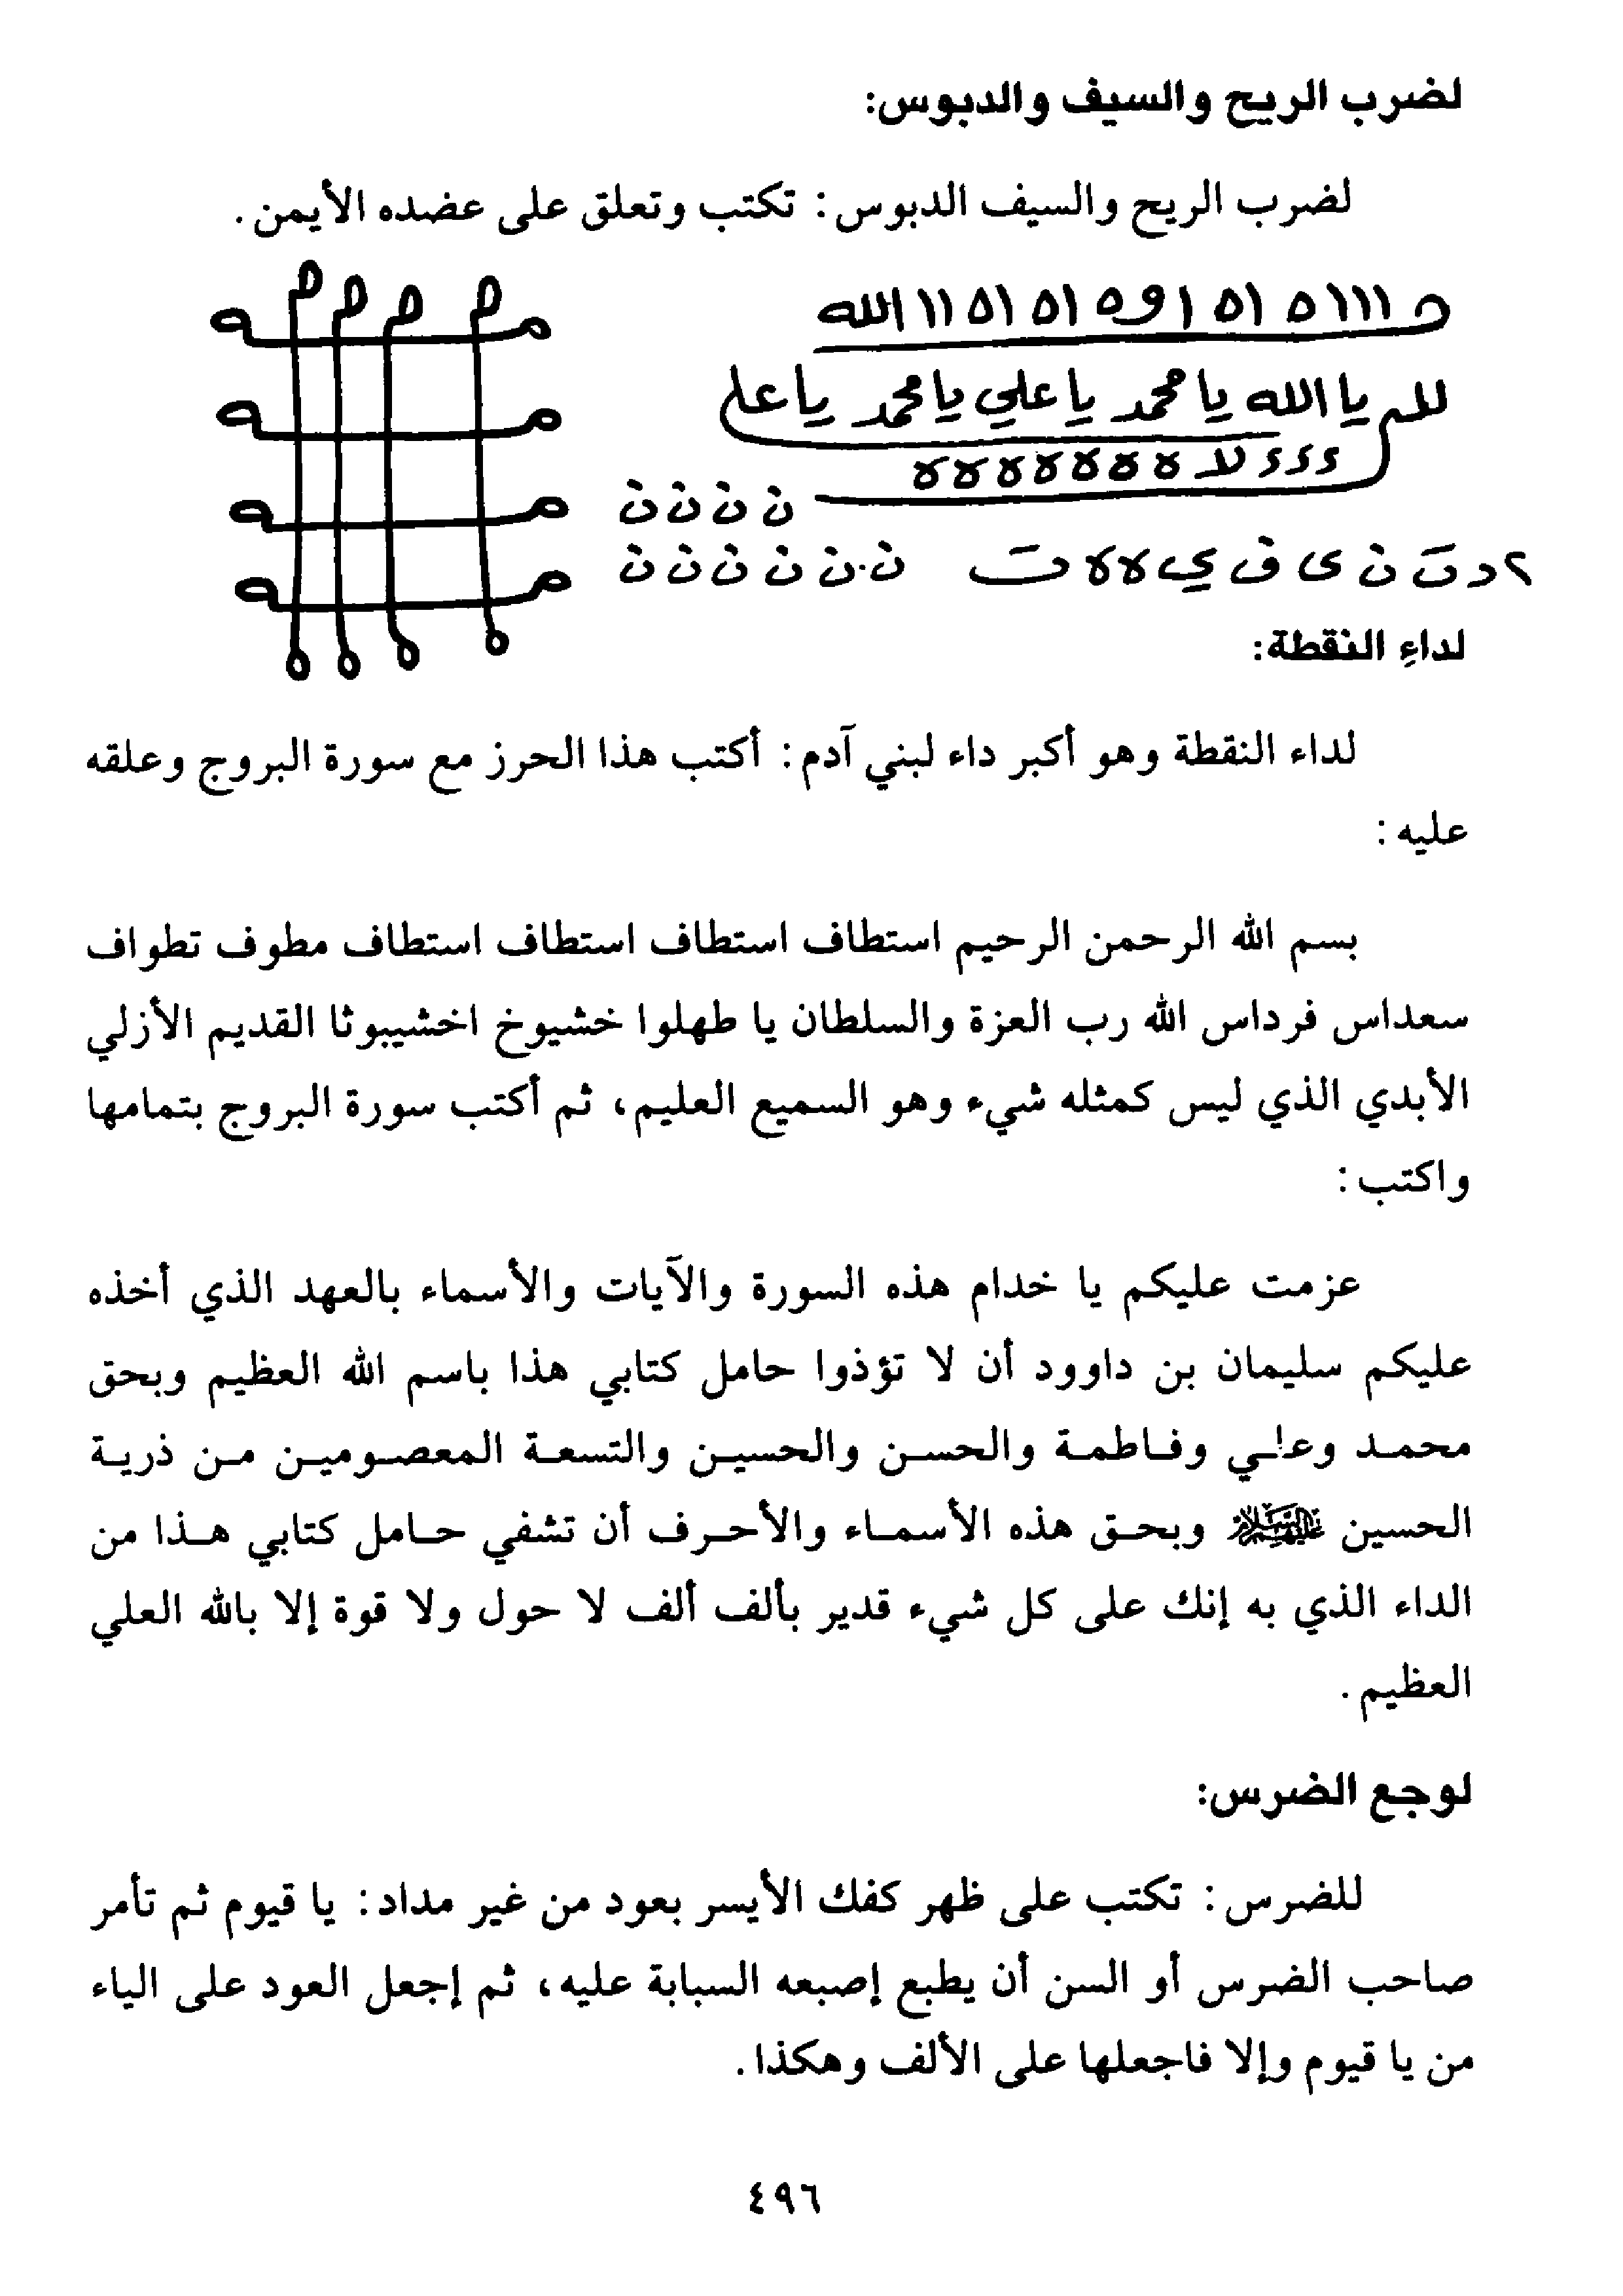 لضرب الريح والسيف والدبوس:
لضرب الريح والسيف الدبوس: تكتب وتعلق على عضده الأيمن.
يا الله يا محمد يا علي يا محمد يا علي
ن ن ن ن
ن ن ن ن ن ن
لداءِ النقطة:
لداء النقطة وهو أكبر داء لبني آدم: أكتب هذا الحرز مع سورة البروج وعلقه
عليه:
بسم الله الرحمن الرحيم استطاف استطاف استطاف استطاف مطوف تطواف
سعداس فرداس الله رب العزة والسلطان يا طهلوا خشيوخ اخشيبوثا القديم الأزلي
الأبدي الذي ليس كمثله شيء وهو السميع العليم، ثم أكتب سورة البروج بتمامها
واكتب:
عزمت عليكم يا خدام هذه السورة والآيات والأسماء بالعهد الذي أخذه
عليكم سليمان بن داوود أن لا تؤذوا حامل كتابي هذا باسم الله العظيم وبحق
محمد وعلي وفاطمة والحسن والحسين والتسعة المعصومين من ذرية
الحسين عليهم السلام وبحق هذه الأسماء والأحرف أن تشفي حامل كتابي هذا من
الداء الذي به إنك على كل شيء قدير بألف ألف لا حول ولا قوة إلا بالله العلي
العظيم.
لوجع الضرس:
للضرس: تكتب على ظهر كفك الأيسر بعود من غير مداد: يا قيوم ثم تأمر
صاحب الضرس أو السن أن يطبع إصبعه السبابة عليه، ثم إجعل العود على الياء
من يا قيوم وإلا فاجعلها على الألف وهكذا.
٤٩٦